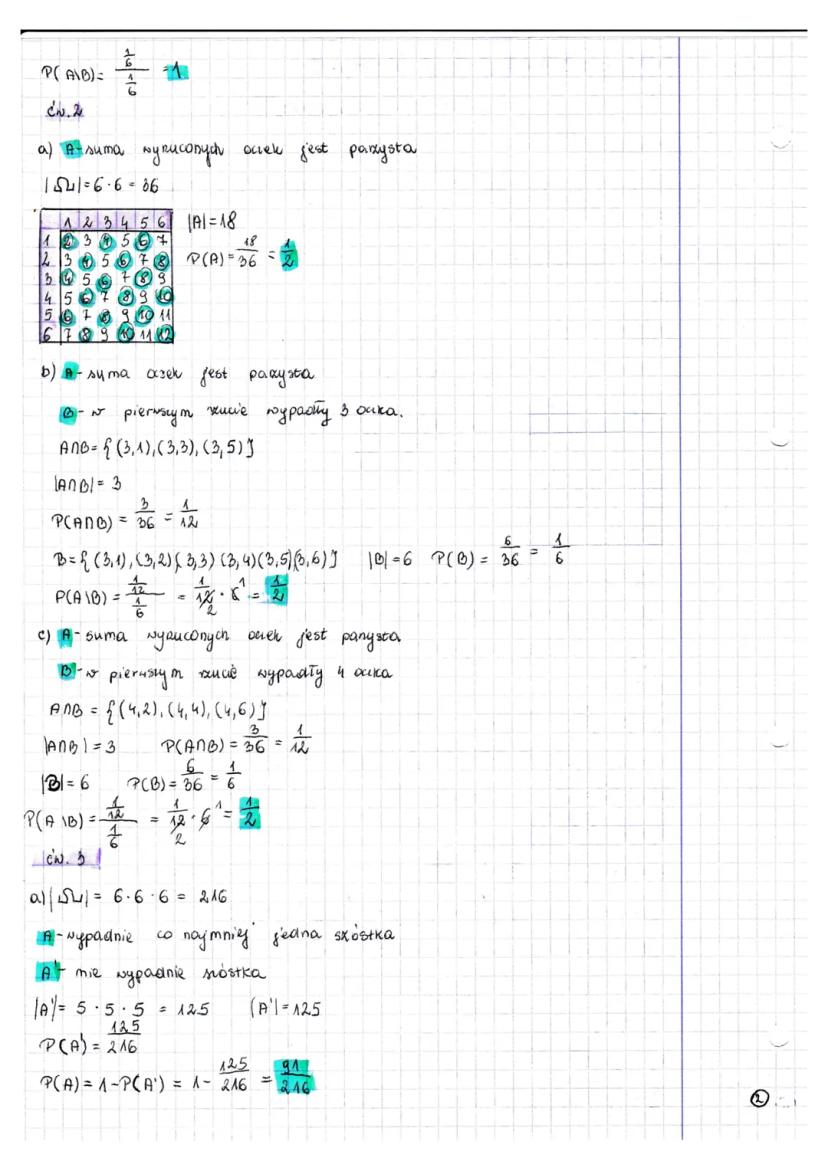 P(A\B) = 1/6 / 1/6 = 1
ćw. 2
a) A - suma wyrzuconych oczek jest parzysta
|Ω| = 6 · 6 = 36
1 2 3 4 5 6 |A| = 18
1 2 3 4 5 6 7
2 3 4 5 6 7 8 P(A) = 18/36 = 1/2
3 4 5 6 7 8 9
4 5 6 7 8 9 10
5 6 7 8 9 10 11
6 7 8 9 10 11 12
b) A - suma oczek jest parzysta
B - w pierwszym rzucie wypadły 3 oczka.
A∩B = {(3,1), (3,3), (3,5)}
|A∩B| = 3
P(A∩B) = 3/36 = 1/12
B = {(3,1), (3,2) (3,3) (3,4) (3,5) (3,6)} |B| = 6 P(B) = 6/36 = 1/6
P(A\B) = 1/12 / 1/6 = 1/12 · 6 = 1/2
c) A - suma wyrzuconych oczek jest parzysta
B - w pierwszym rzucie wypadły 4 oczka
A∩B = {(4,2), (4,4), (4,6)}
|A∩B| = 3 P(A∩B) = 3/36 = 1/12
|B| = 6 P(B) = 6/36 = 1/6
P(A\B) = 1/12 / 1/6 = 1/12 · 6 = 1/2
ćw. 3
a) |Ω| = 6 · 6 · 6 = 216
A - wypadnie co najmniej jedna szóstka
A' - nie wypadnie szóstka
|A'| = 5 · 5 · 5 = 125 |A'| = 125
P(A') = 125/216
P(A) = 1 - P(A') = 1 - 125/216 = 91/216
2